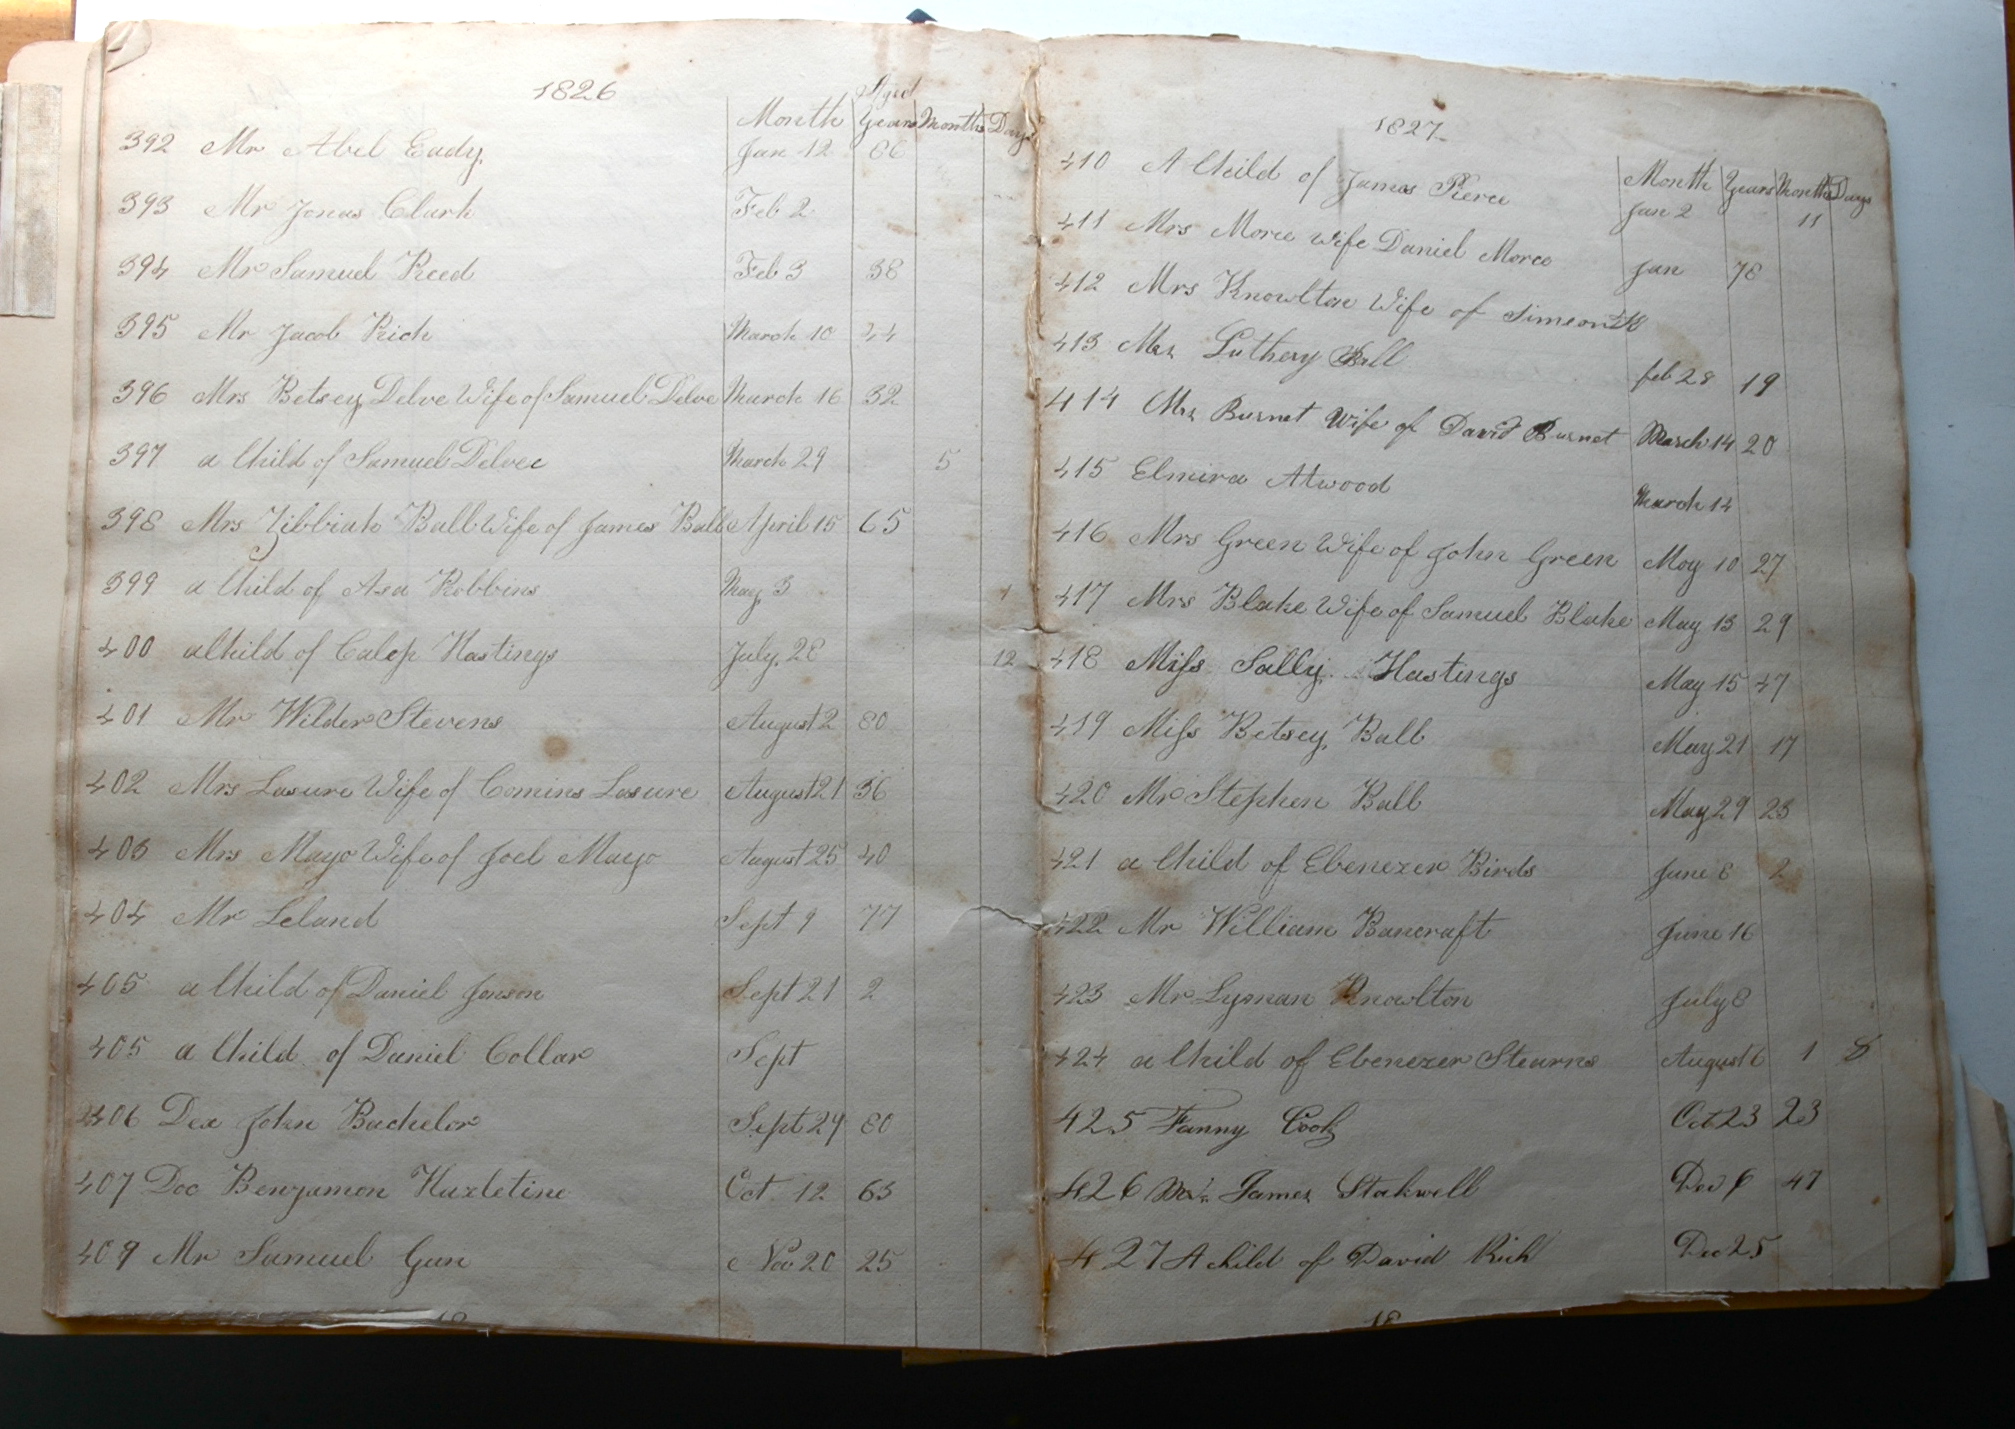 1826
Aged
Month Years Months Days
392 Mr Abel Eady Jan 12 86
393 Mr Jonas Clark Feb 2
394 Mr Samuel Reed Feb 3 38
395 Mr Jacob Rich March 10 44
396 Mrs Betsey Delve Wife of Samuel Delve March 16 32
397 a Child of Samuel Delvee March 29 5
398 Mrs Zibbiah Ball Wife of James Ball April 15 65
399 a Child of Asa Robbins May 3 1
400 a Child of Calep Hastings July 28 12
401 Mr Wilder Stevens August 2 80
402 Mrs Lasure Wife of Comins Lasure August 21 36
403 Mrs Mayo Wife of Joel Mayo August 25 40
404 Mr Leland Sept 9 77
405 a Child of Daniel Jonson Sept 21 2
405 a Child of Daniel Collar Sept
406 Dea John Bachelor Sept 29 80
407 Doc Benjamon Hazletine Oct 12 63
409 Mr Samuel Gun Nov 20 25
18
1827
Month Years Months Days
410 A Child of James Pierce Jan 2 11
411 Mrs Morce wife Daniel Morce Jan 78
412 Mrs Knowlton Wife of Simeon K
413 Mrs Luthery Ball feb 28 19
414 Mrs Burnet Wife of David Burnet March 14 20
415 Elmira Atwood March 14
416 Mrs Green Wife of John Green May 10 27
417 Mrs Blake Wife of Samuel Blake May 13 29
418 Miss Sally Hastings May 15 47
419 Miss Betsey Ball May 21 17
420 Mr Stephen Ball May 29 23
421 a Child of Ebenezer Birds June 8 2
422 Mr William Bancraft June 16
423 Mr Lyman Knowlton July 8
424 a Child of Ebenezer Stearns August 6 1 8
425 Fanny Cook Oct 23 23
426 Mr James Stakwell Dec 6 47
427 A child of David Rich Dec 25
18